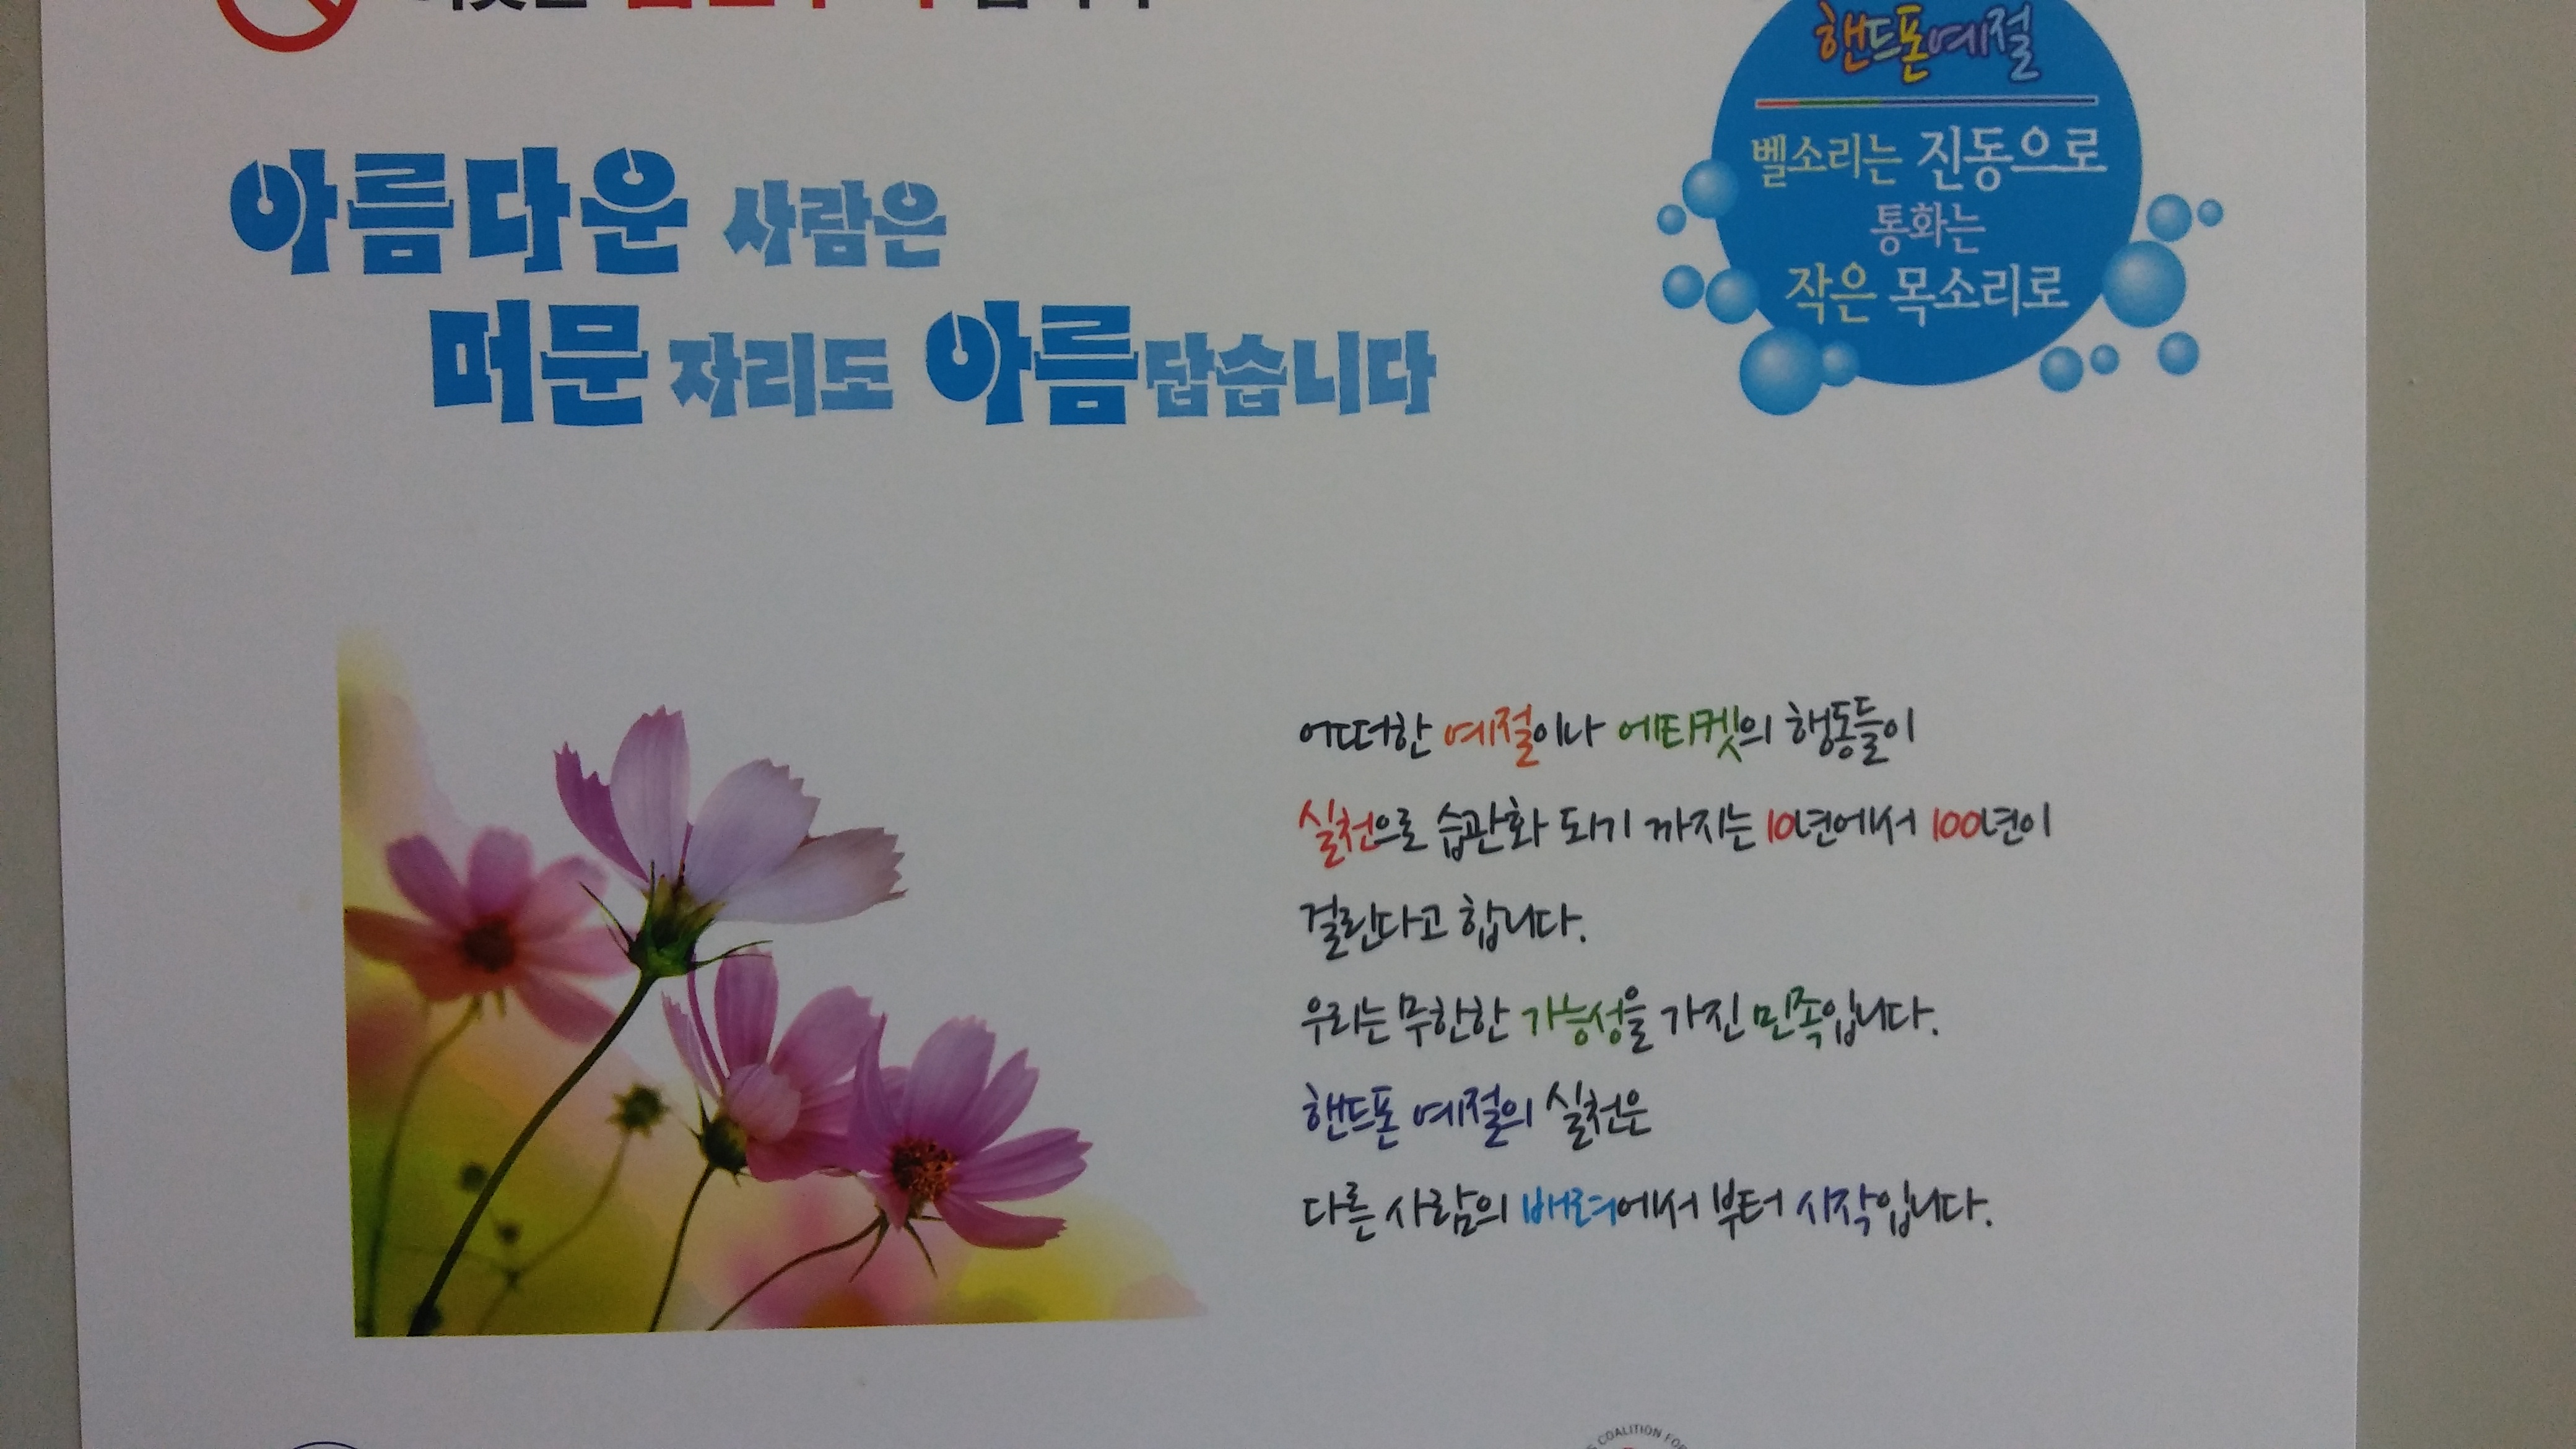 핸드폰예절
벨소리는 진동으로
통화는
작은 목소리로
아름다운 사람은
머문 자리도 아름답습니다
어떠한 예절이나 에티켓의 행동들이
실천으로 습관화 되기 까지는 10년에서 100년이
걸린다고 합니다.
우리는 무한한 가능성을 가진 민족입니다.
핸드폰 예절의 실천은
다른 사람의 배려에서 부터 시작입니다.
COALITION FOR